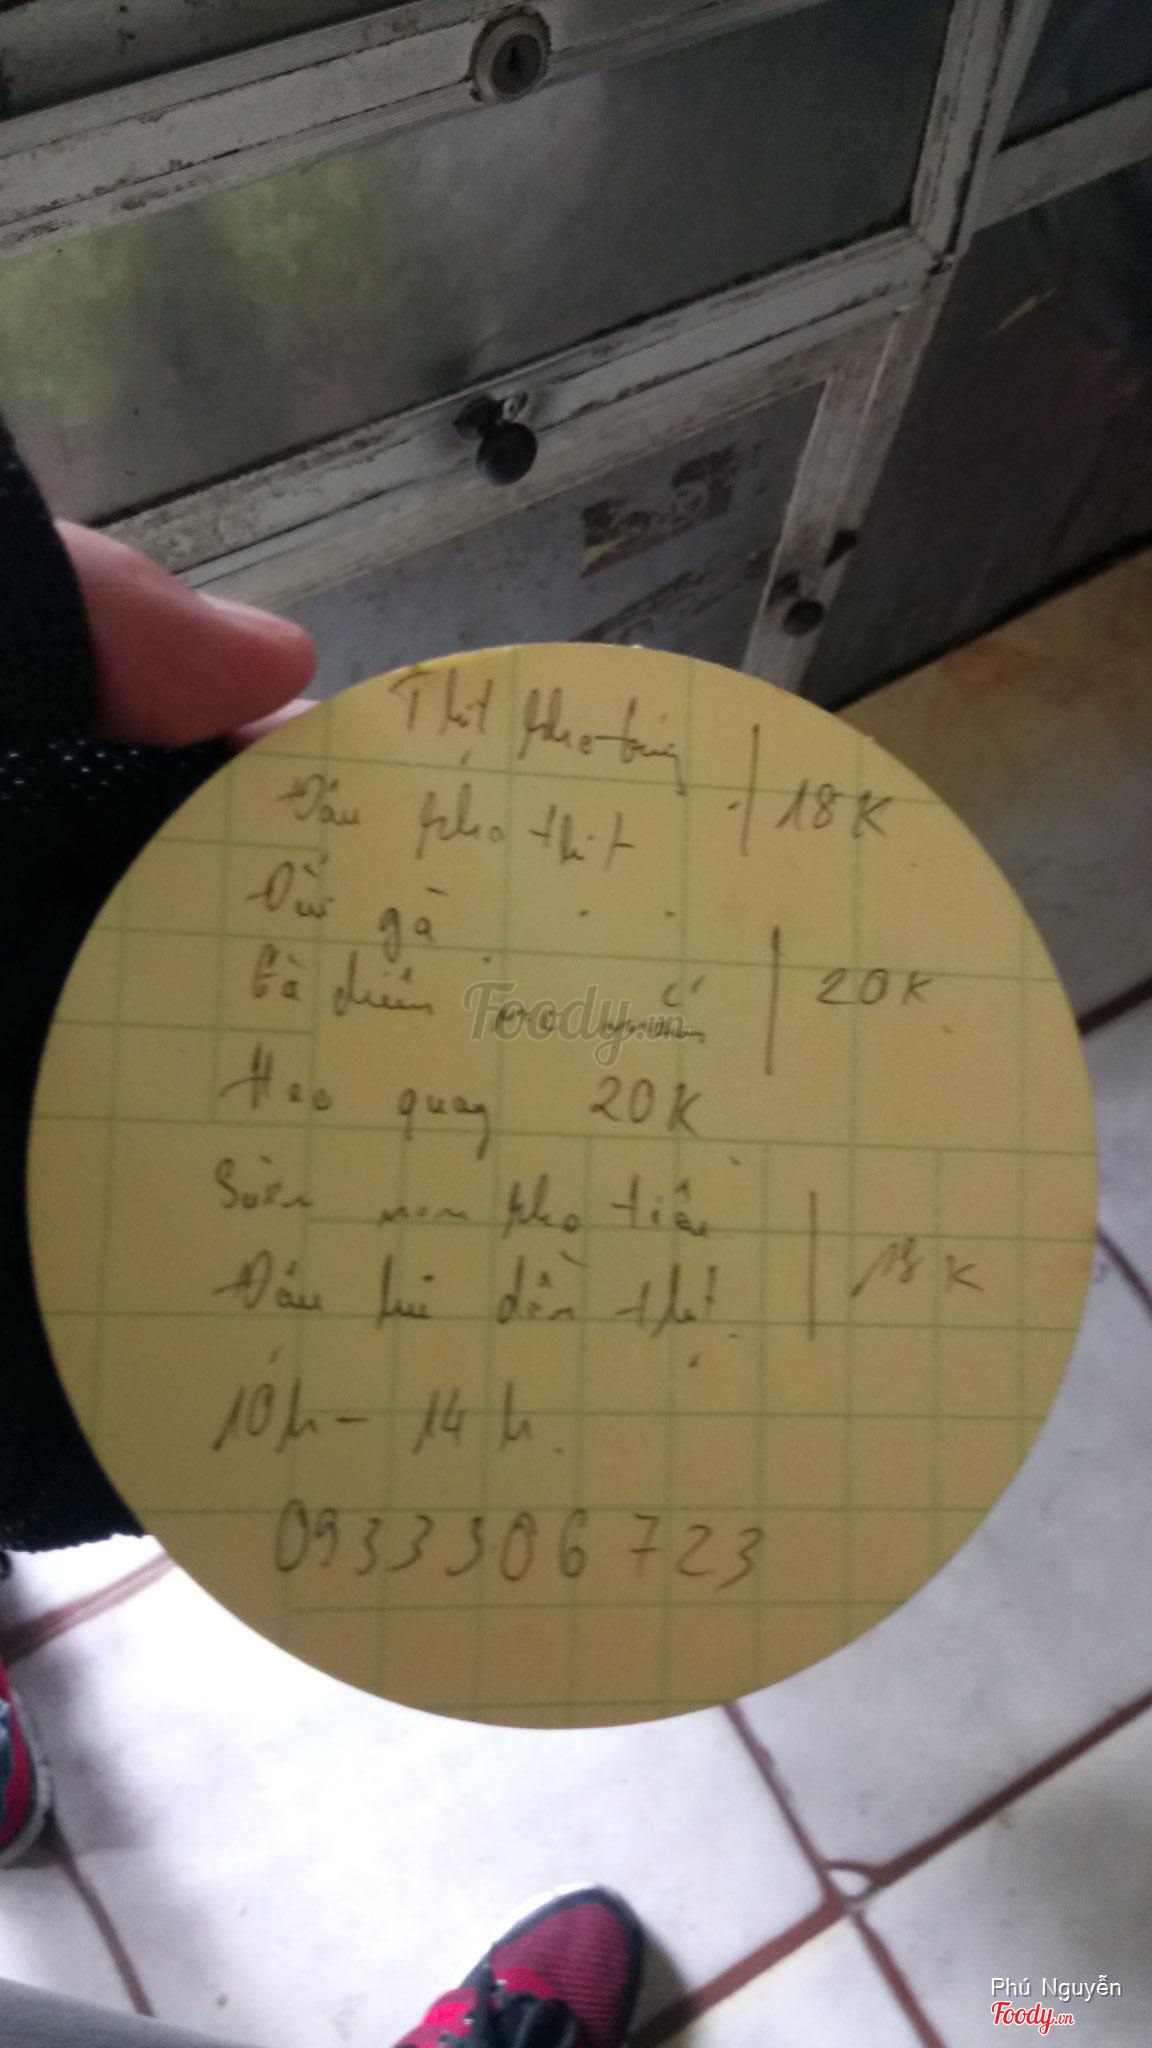 Thịt kho trứng
18K
Đậu kho thịt
Đùi gà
Gà chiên nước mắm
20K
Heo quay 20K
Sườn non kho tiêu
Đậu hũ dồn thịt.
18K
10h - 14h.
0933306723
Foody.vn
Phú Nguyễn
Foody.vn